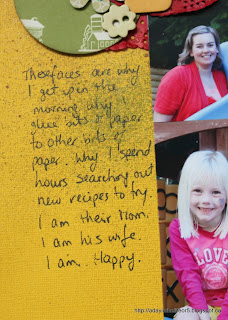 These faces are why
I get up in the
morning. Why I
glue bits of paper
to other bits of
paper. Why I spend
hours searching out
new recipes to try.
I am their Mom.
I am his wife.
I am Happy.
LOVE